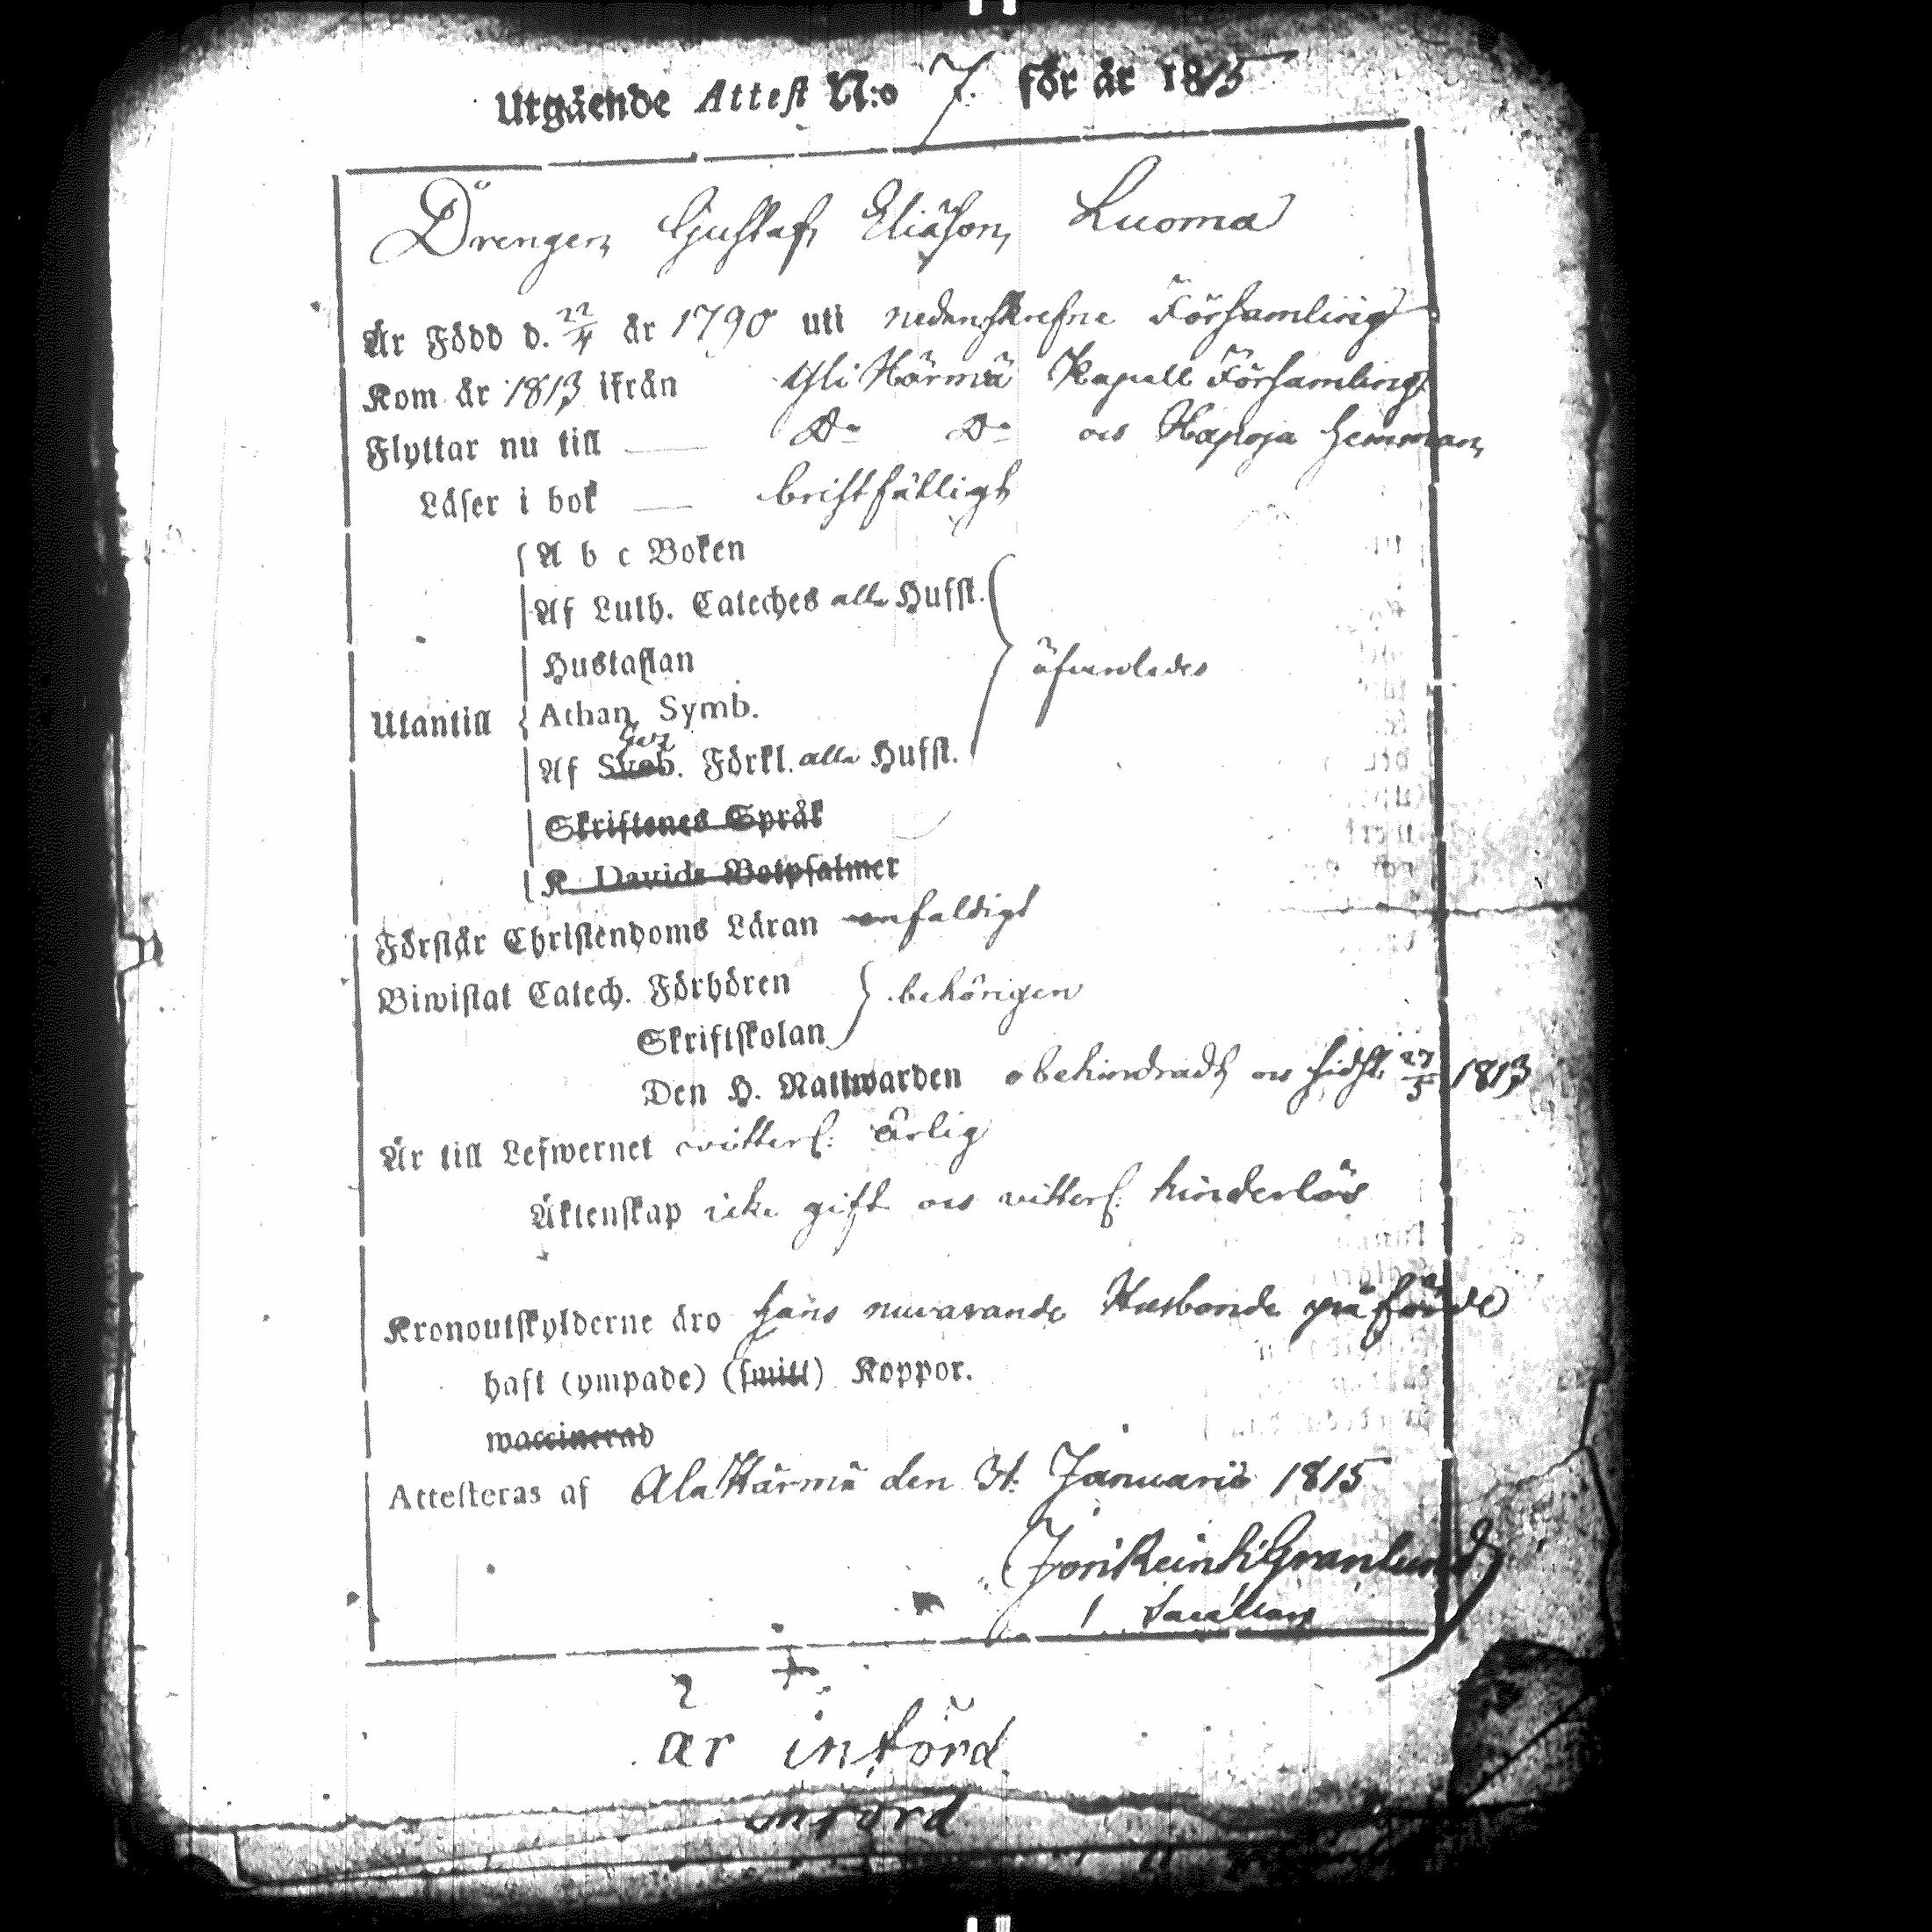 Utgående Attest N:o 7. för år 1815
Drengen Gustaf Eliäson Luoma
Är Född d. 22/4 år 1790 uti nedanskrefne Församling
Kom år 1813 ifrån Yli Härmä Kapell Församling
Flyttar nu till — Do Do och Hapoja hemman
Läser i bok — bristfälligt
A b c Boken
Af Luth. Cateches alla Hufst.
Hustaflan äfvenledes
Utantill Athan. Symb.
Af Sveb. Förkl. alla Hufst.
Skriftenes Språk
K Davids Botpsalmer
Förstår Christendoms Läran enfaldigt
Biwistat Catech. Förhören behörigen
Skriftskolan
Den H. Nattwarden obehindradt och sidst 27/5 1813
Är till Lefwernet witterl: ärlig
Äktenskap icke gift och vitterl: hinderlös
Kronoutskylderne äro hans nuvarande Husbonde påförde
haft (ympade) (smitt) Koppor.
waccinerad
Attesteras af Ala Härmä den 31. Januarii 1815
Granlund
Sacellan
är införd
införd